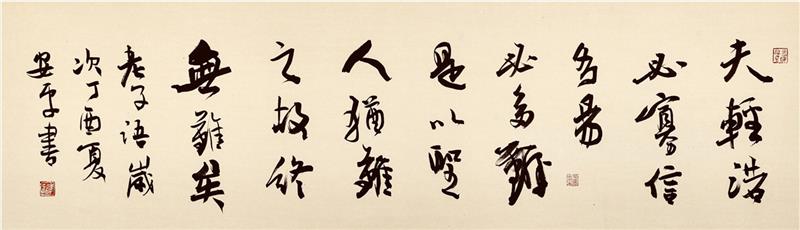 夫輕諾
必寡信
多易
必多難
是以聖
人猶難
之故終
無難矣
老子語歲
次丁酉夏
安平書